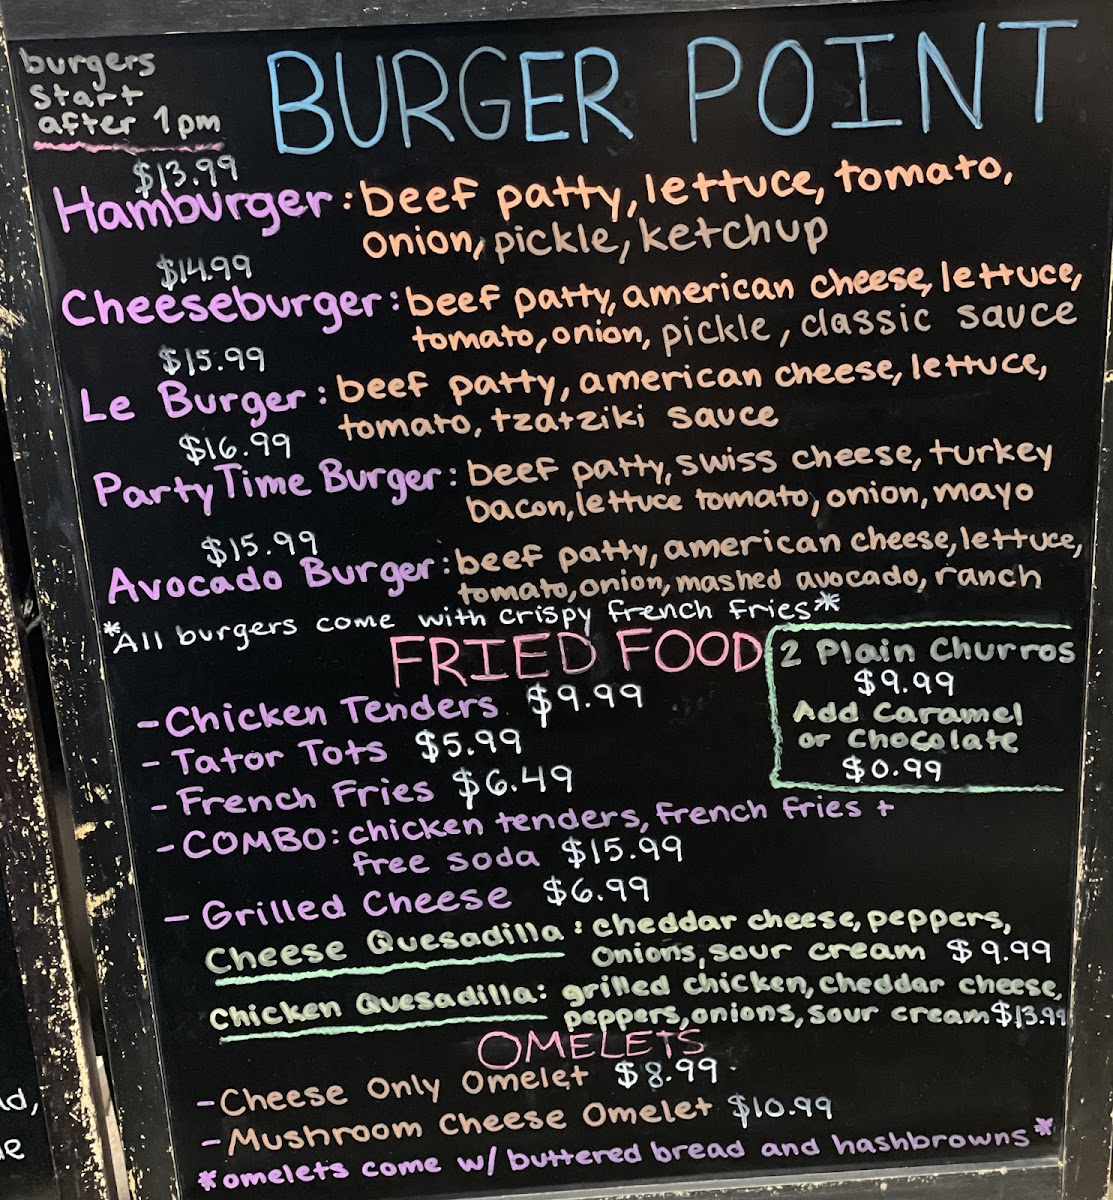 burgers
start
after 1pm
BURGER POINT
$13.99
Hamburger: beef patty, lettuce, tomato,
onion, pickle, ketchup
$14.99
Cheeseburger: beef patty, american cheese, lettuce,
tomato, onion, pickle, classic sauce
$15.99
Le Burger: beef patty, american cheese, lettuce,
tomato, tzatziki sauce
$16.99
Party Time Burger: beef patty, swiss cheese, turkey
bacon, lettuce tomato, onion, mayo
$15.99
Avocado Burger: beef patty, american cheese, lettuce,
tomato, onion, mashed avocado, ranch
*All burgers come with crispy french fries*
FRIED FOOD
- Chicken Tenders $9.99
- Tator Tots $5.99
- French Fries $6.49
- COMBO: chicken tenders, french fries +
free soda $15.99
- Grilled Cheese $6.99
2 Plain Churros
$9.99
Add Caramel
or Chocolate
$0.99
Cheese Quesadilla: cheddar cheese, peppers,
onions, sour cream $9.99
Chicken Quesadilla: grilled chicken, cheddar cheese,
peppers, onions, sour cream $13.99
OMELETS
- Cheese Only Omelet $8.99
- Mushroom Cheese Omelet $10.99
*omelets come w/ buttered bread and hashbrowns*